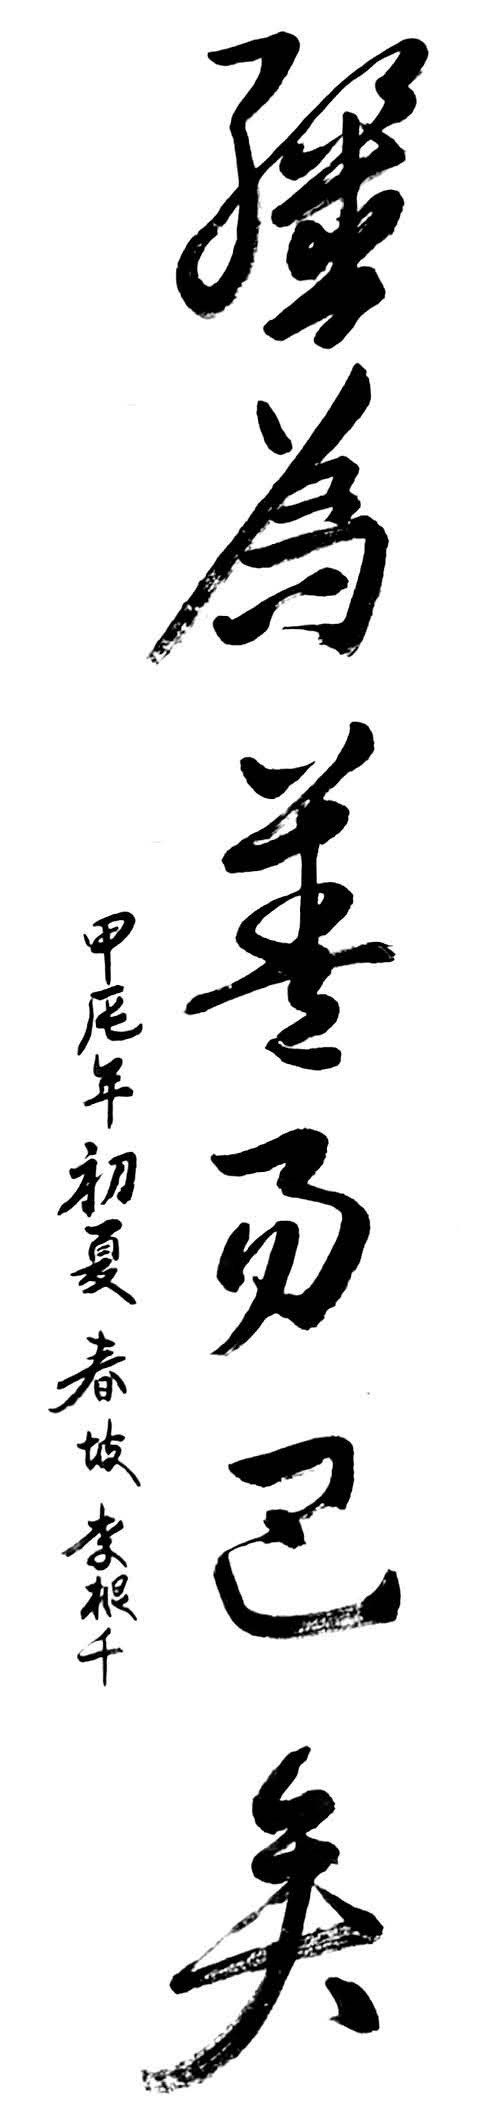 彊為善而已矣
甲辰年初夏 春坡 李根千